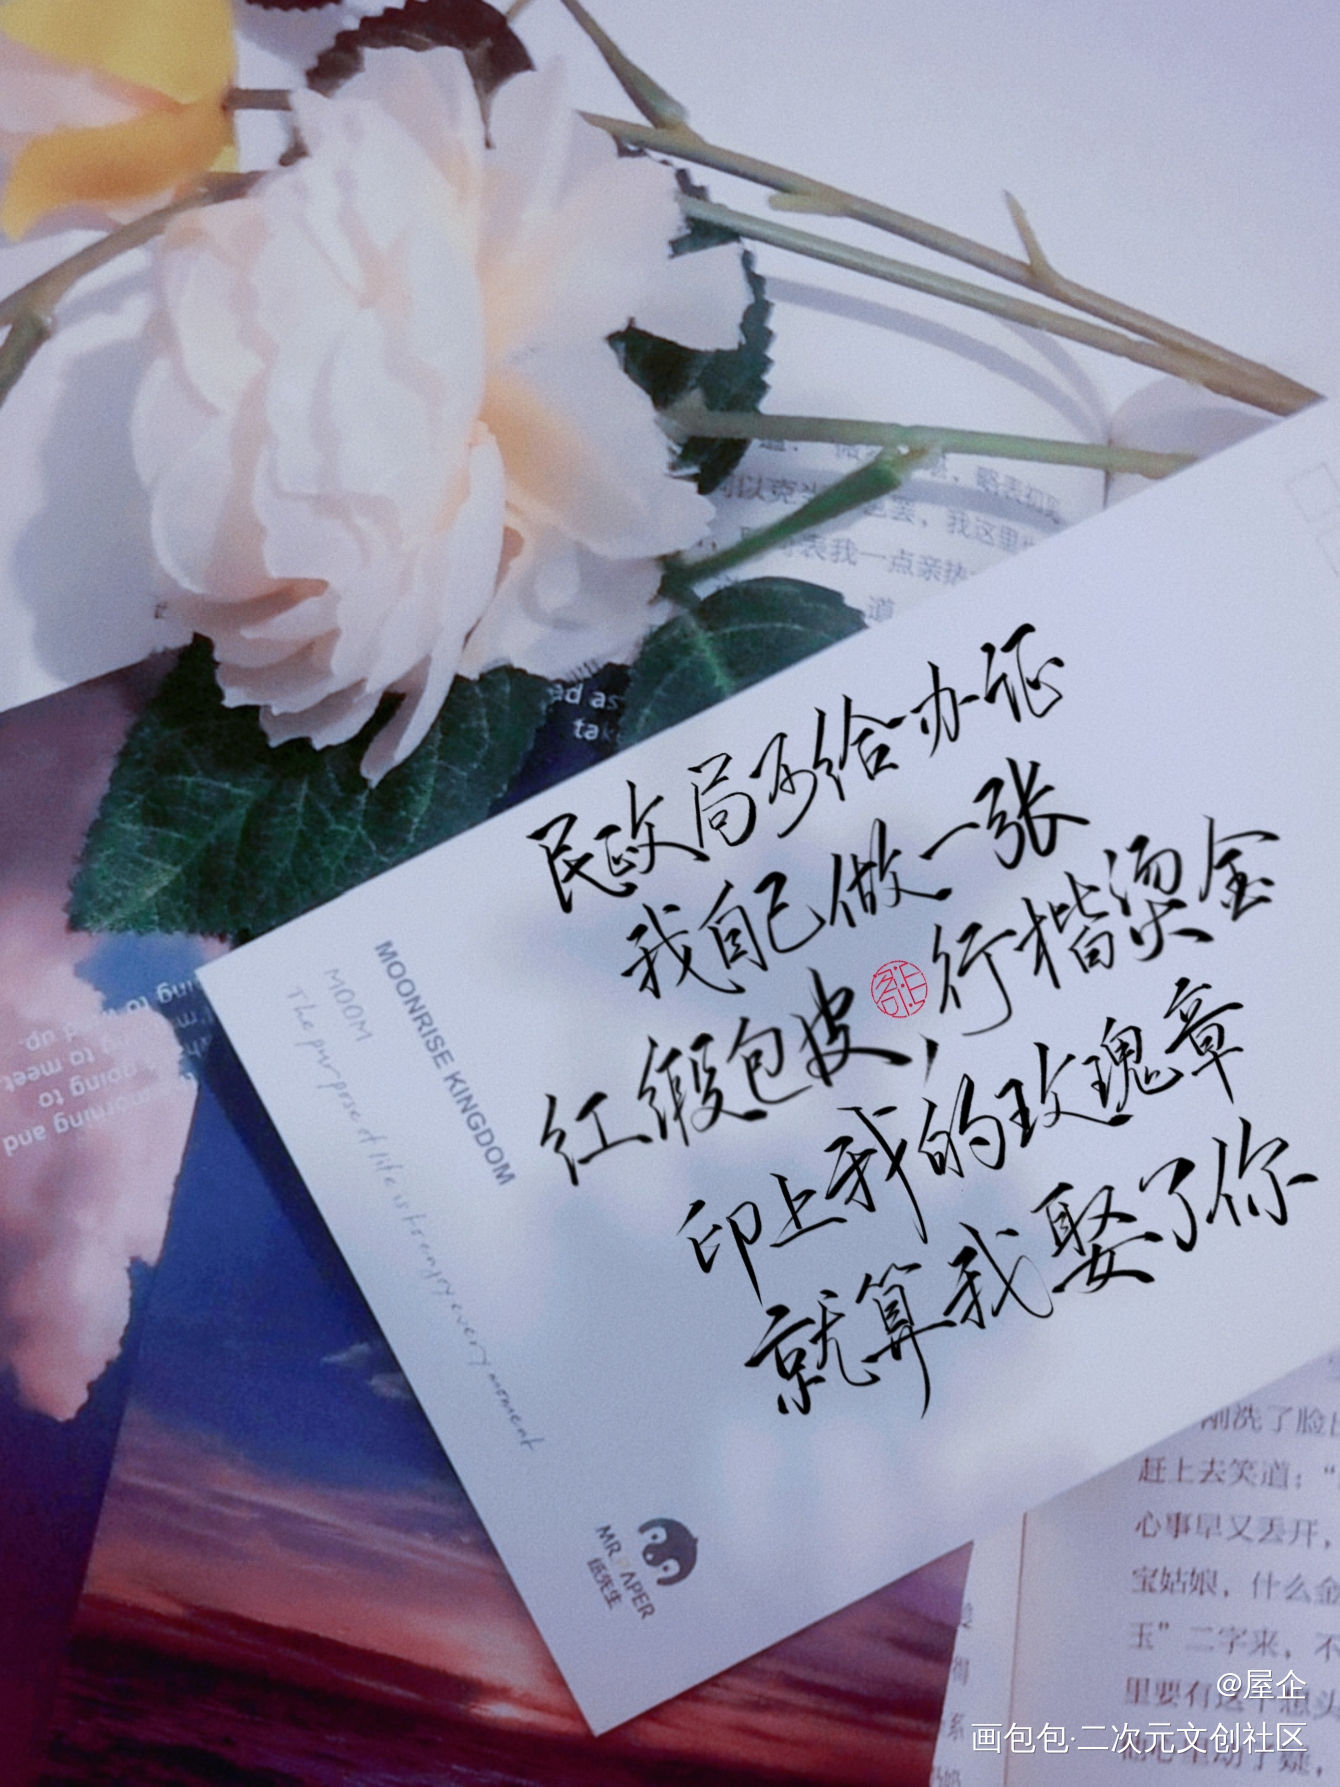 民政局不给办证
我自己做一张
红缎包皮，行楷烫金
印上我的玫瑰章
就算我娶了你
MOONRISE KINGDOM
MOOM
The purprse of life is to enjoy every moment
MR.PAPER
纸先生
略表初见
可以克当
我这里
表我一点亲热
道
ad as
take
morning and
going to
to meet
up.
刚洗了脸出
赶上去笑道：“
心事早又丢开，
宝姑娘，什么金
玉”二字来，不
里要有这个念头
@屋企
画包包·二次元文创社区